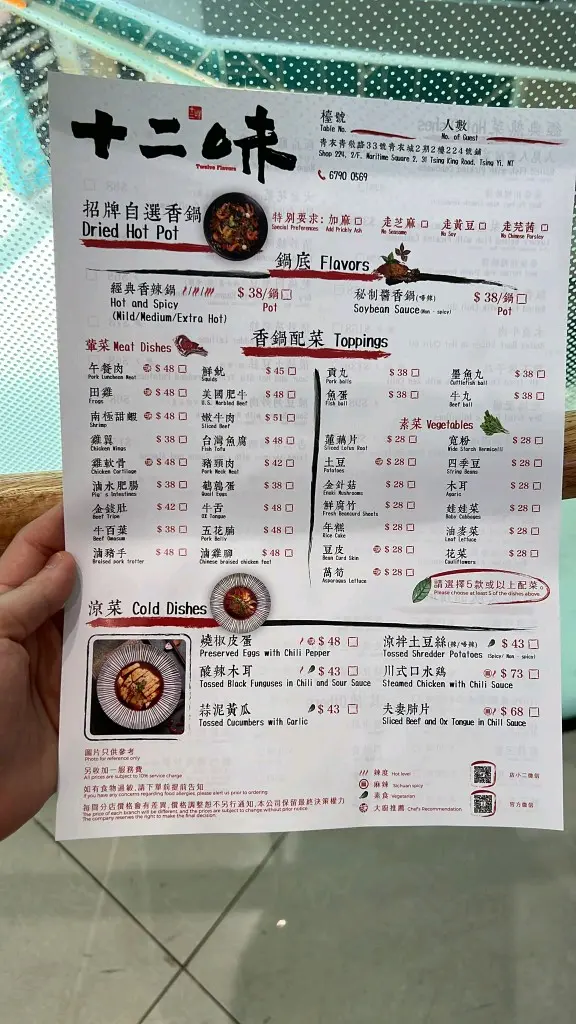 十二味
Twelve Flavors
檯號
Table No.
人數
No. of Guest
青衣青敬路33號青衣城2期2樓224號鋪
Shop 224, 2/F, Maritime Square 2, 31 Tsing King Road, Tsing Yi, NT
6790 0569
招牌自選香鍋
Dried Hot Pot
特別要求: 加麻 走芝麻 走黃豆 走芫茜
Special Preferences Add Prickly Ash No Seasame No Soy No Chinese Parsley
鍋底 Flavors
經典香辣鍋 $ 38/鍋
Hot and Spicy Pot
(Mild/Medium/Extra Hot)
秘制醬香鍋(唔辣) $ 38/鍋
Soybean Sauce(Non - spicy) Pot
香鍋配菜 Toppings
葷菜 Meat Dishes
午餐肉 $ 48
Pork Luncheon Meat
田雞 $ 48
Frogs
南極甜蝦 $ 48
Shrimp
雞翼 $ 38
Chicken Wings
雞軟骨 $ 48
Chicken Cartilage
滷水肥腸 $ 38
Pig's Intestines
金錢肚 $ 42
Beef Tripe
牛百葉 $ 38
Beef Omasum
滷豬手 $ 48
Braised pork trotter
鮮魷 $ 45
Squids
美國肥牛 $ 48
U.S. Marbled Beef
嫩牛肉 $ 51
Sliced Beef
台灣魚腐 $ 48
Fish Tofu
豬頸肉 $ 42
Pork Neck Meat
鵪鶉蛋 $ 38
Quail Eggs
牛舌 $ 48
Ox Tongue
五花腩 $ 48
Pork Belly
滷雞腳 $ 48
Chinese braised chicken feet
貢丸 $ 38
Pork balls
魚蛋 $ 38
Fish ball
墨魚丸 $ 38
Cuttlefish ball
牛丸 $ 38
Beef ball
素菜 Vegetables
蓮藕片 $ 28
Sliced Lotus Root
土豆 $ 28
Potatoes
金針菇 $ 28
Enoki Mushrooms
鮮腐竹 $ 28
Fresh Beancurd Sheets
年糕 $ 28
Rice Cake
豆皮 $ 28
Bean Curd Skin
萵筍 $ 28
Asparagus Lettuce
寬粉 $ 28
Wide Starch Vermicelli
四季豆 $ 28
String Beans
木耳 $ 28
Agaric
娃娃菜 $ 28
Baby Cabbages
油麥菜 $ 28
Leaf Lettuce
花菜 $ 28
Cauliflowers
請選擇5款或以上配菜。
Please choose at least 5 of the dishes above.
涼菜 Cold Dishes
燒椒皮蛋 $ 48
Preserved Eggs with Chili Pepper
酸辣木耳 $ 43
Tossed Black Funguses in Chili and Sour Sauce
蒜泥黃瓜 $ 43
Tossed Cucumbers with Garlic
涼拌土豆絲(辣/唔辣) $ 43
Tossed Shredder Potatoes (Spicy/ Non - spicy)
川式口水鶏 $ 73
Steamed Chicken with Chili Sauce
夫妻肺片 $ 68
Sliced Beef and Ox Tongue in Chill Sauce
圖片只供參考
Photo for reference only
另收加一服務費
All prices are subject to 10% service charge
如有食物過敏,請下單前提前告知
If you have any concerns regarding food allergies, please alert us prior to ordering
每間分店價格會有差異,價格調整恕不另行通知,本公司保留最終決策權力
The price of each branch will be different, and the prices are subject to change without prior notice
The company reserves the right to make the final decision.
辣度 Hot level
麻辣 Sichuan spicy
素食 Vegetarian
大廚推薦 Chef's Recommendation
店小二微信
官方微信